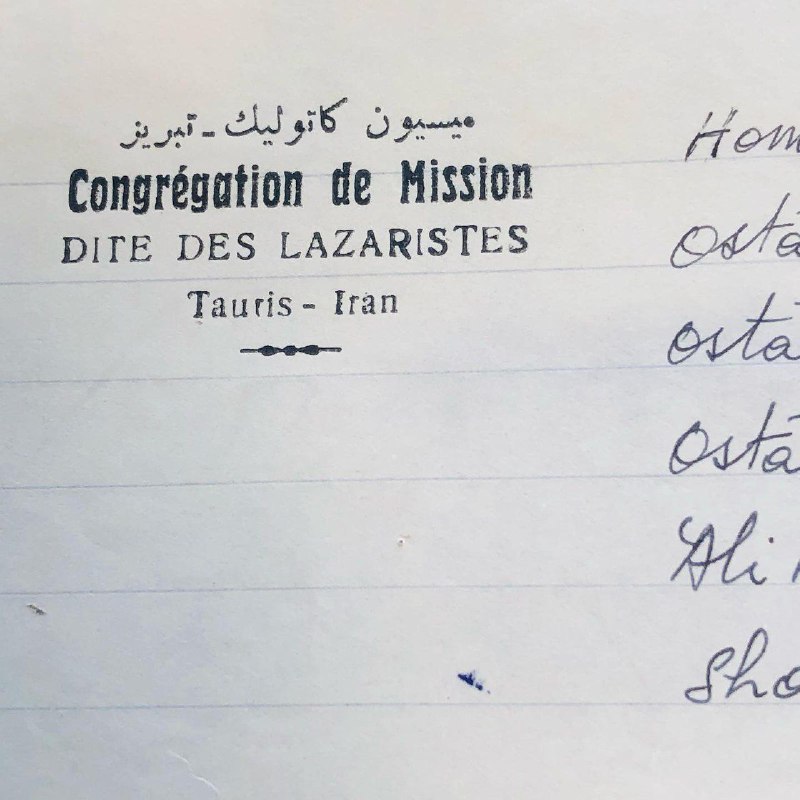 ميسيون كاتوليك - تبريز
Congrégation de Mission
DITE DES LAZARISTES
Tauris - Iran
Hom
Ostā
Ostā
Ostā
Ali
Sho